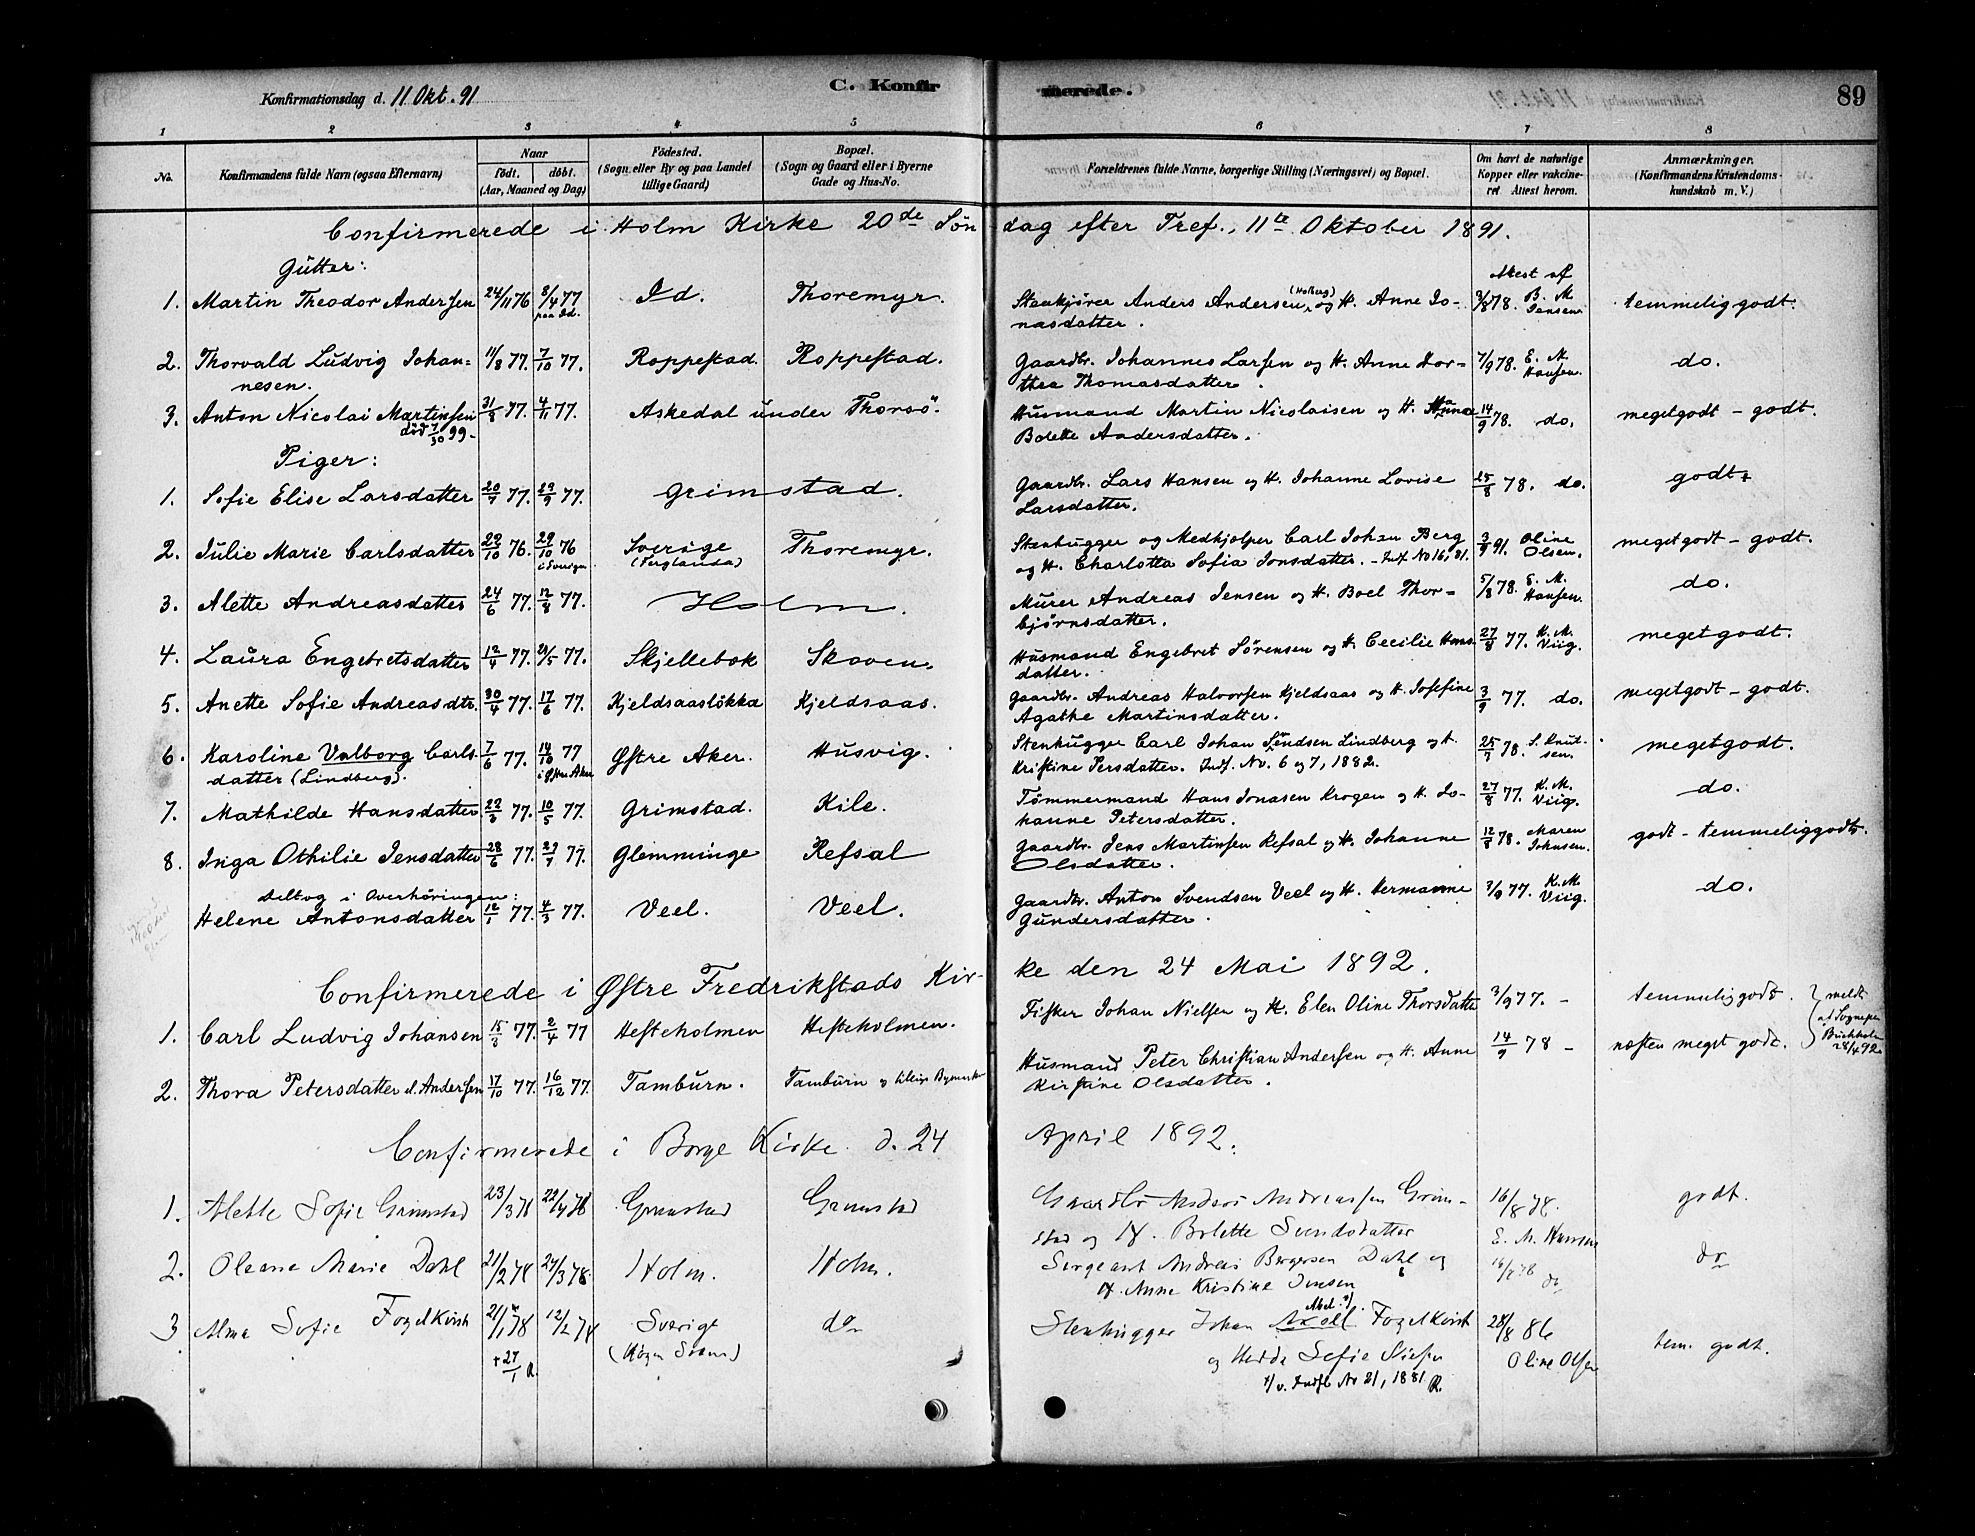 Konfirmationsdag d. 11 Okt. 91
C. Konfirmerede.
89
1 2 3 4 5 6 7 8
No.
Konfirmandens fulde Navn (ogsaa Efternavn)
Naar
født. døbt.
(Aar, Maaned og Dag)
Fødested.
(Sogn eller By og paa Landet tillige Gaard)
Bopæl.
(Sogn og Gaard eller i Byerne Gade og Hus-No.
Forældrenes fulde Navne, borgerlige Stilling (Næringsvei) og Bopæl.
Om havt de naturlige Kopper eller vaccineret Attest herom.
Anmærkninger.
(Konfirmandens Kristendomskundskab m. V.)
Confirmerede i Holm Kirke 20de Søndag efter Tref., 11te Oktober 1891.
Gutter:
Attest af
1. Martin Theodor Andersen 24/11 76 8/4 77 paa Id. Id. Thoremyr. Stenkjører Anders Andersen (Holberg) og H. Anne Jonasdatter. 9/8 78. B. M. Jensen temmelig godt.
2. Thorvald Ludvig Johannesen. 11/8 77. 7/10 77. Roppestad. Roppestad. Gaardbr. Johannes Larsen og H. Anne Dorthea Thomasdatter. 7/9 78. E. M. Hansen. do.
3. Anton Nicolai Martinsen 31/8 77. 4/11 77. Askedal under Thorsö. Husmand Martin Nicolaisen og H. Anna Bolette Andersdatter. 14/9 78. do. megetgodt - godt.
död 7/30 99.
Piger:
1. Sofie Elise Larsdatter 20/7 77. 29/9 77. Grimstad. Gaardbr. Lars Hansen og H. Johanne Lovise Larsdatter. 25/8 78. do. godt
2. Julie Marie Carlsdatter 22/10 76. 29/10 76 i Sverige Sverige (Ferglanda) Thoremyr. Stenhugger og Medhjelper Carl Johan Berg og H. Charlotta Sofia Jonsdatter. - Indf. No 16, 81. 3/9 91. Oline Olsen. megetgodt - godt.
3. Alette Andreasdatter 24/6 77. 12/8 77. Holm. Murer Andreas Jensen og H. Boel Thorbjørnsdatter. 5/8 78. E. M. Hansen. do.
4. Laura Engebretsdatter 12/4 77. 21/5 77. Skjellebok Skoven. Husmand Engebret Sörensen og H. Cecilie Hansdatter. 27/8 77. K. M. Viig. megetgodt.
5. Anette Sofie Andreasdtr. 30/4 77. 17/6 77. Kjeldsaasløkka Kjeldsaas. Gaardbr. Andreas Halvorsen Kjeldsaas og H. Josefine Agathe Martinsdatter. 3/9 77. do. megetgodt - godt.
6. Karoline Valborg Carlsdatter (Lindberg). 7/6 77. 14/10 77 i Østre Aker Østre Aker. Husvig. Stenhugger Carl Johan Svendsen Lindberg og H. Kristine Persdatter. Indf. No. 6 og 7, 1882. 25/7 78. S. Knutsen. megetgodt.
7. Mathilde Hansdatter 22/3 77. 10/5 77. Grimstad. Kile. Tömmermand Hans Jonasen Krogen og H. Johanne Petersdatter. 27/8 77. K. M. Viig. do.
8. Inga Othilie Jensdatter 28/6 77. 29/7 77. Glemminge Refsal Gaardbr. Jens Martinsen Refsal og H. Johanne Olsdatter. 12/8 78. Maren Johnsen. godt - temmeliggodt.
deltog i Overhøringen:
Helene Antonsdatter 12/1 77. 4/3 77. Veel. Veel. Gaardbr. Anton Svendsen Veel og H. Hermanne Gundersdatter. 3/9 77. K. M. Viig. do.
Confirmerede i Østre Fredrikstads Kirke den 24 Mai 1892.
1. Carl Ludvig Johansen 15/8 77. 2/4 77 Hesteholmen Hesteholmen. Fisker Johan Nielsen og H. Elen Oline Thorsdatter 3/9 77. - temmelig godt.
meldt af Sognepr. Buchholm 28/4 92.
2. Thora Petersdatter el. Andersen 17/10 77. 16/12 77. Tamburn. Tamburn Husmand Peter Christian Andersen og H. Anne Kirstine Olsdatter. 14/9 78 - næsten meget godt.
Confirmerede i Borge Kirke d. 24 April 1892.
1. Alette Sofie Grimstad 23/3 78 22/4 78 Grimstad Grimstad Gaardbr Anders Andreassen Grimstad og H. Bolette Svendsdatter 16/8 78. E. M. Hansen godt.
2. Oleane Marie Dahl 21/2 78 27/3 78. Holm. Holm. Sergeant Andreas Bergersen Dahl og H. Anne Kristine Jensen 16/8 78 do do
3 Alma Sofie Fogelkvist 21/1 78 12/2 78 Sverige do Stenhugger Johan Abel Fogelkvist og Hedda Sofie 28/8 86 Oline Olsen tem. godt.
+ 27/1 R.
*/ v. Indfl No 21, 1881 R.